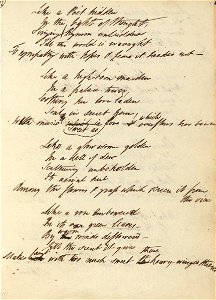 Like a Poet hidden
In the light of thought,
Singing hymns unbidden
Till the world is wrought
To sympathy with hopes & fears it heeded not —
Like a highborn maiden
In a palace tower,
Soothing her love laden
Soul in secret hour,
With music sweet as which overflows her bower
Like a glow worm golden
In a dell of dew
Scattering unbeholden
Its aerial hue
Among the flowers & grass which screen it from
the view
Like a rose embowered
In its own green leaves
By winds deflowered —
Till the scent it gives
Makes with too much sweet these heavy-winged thieves